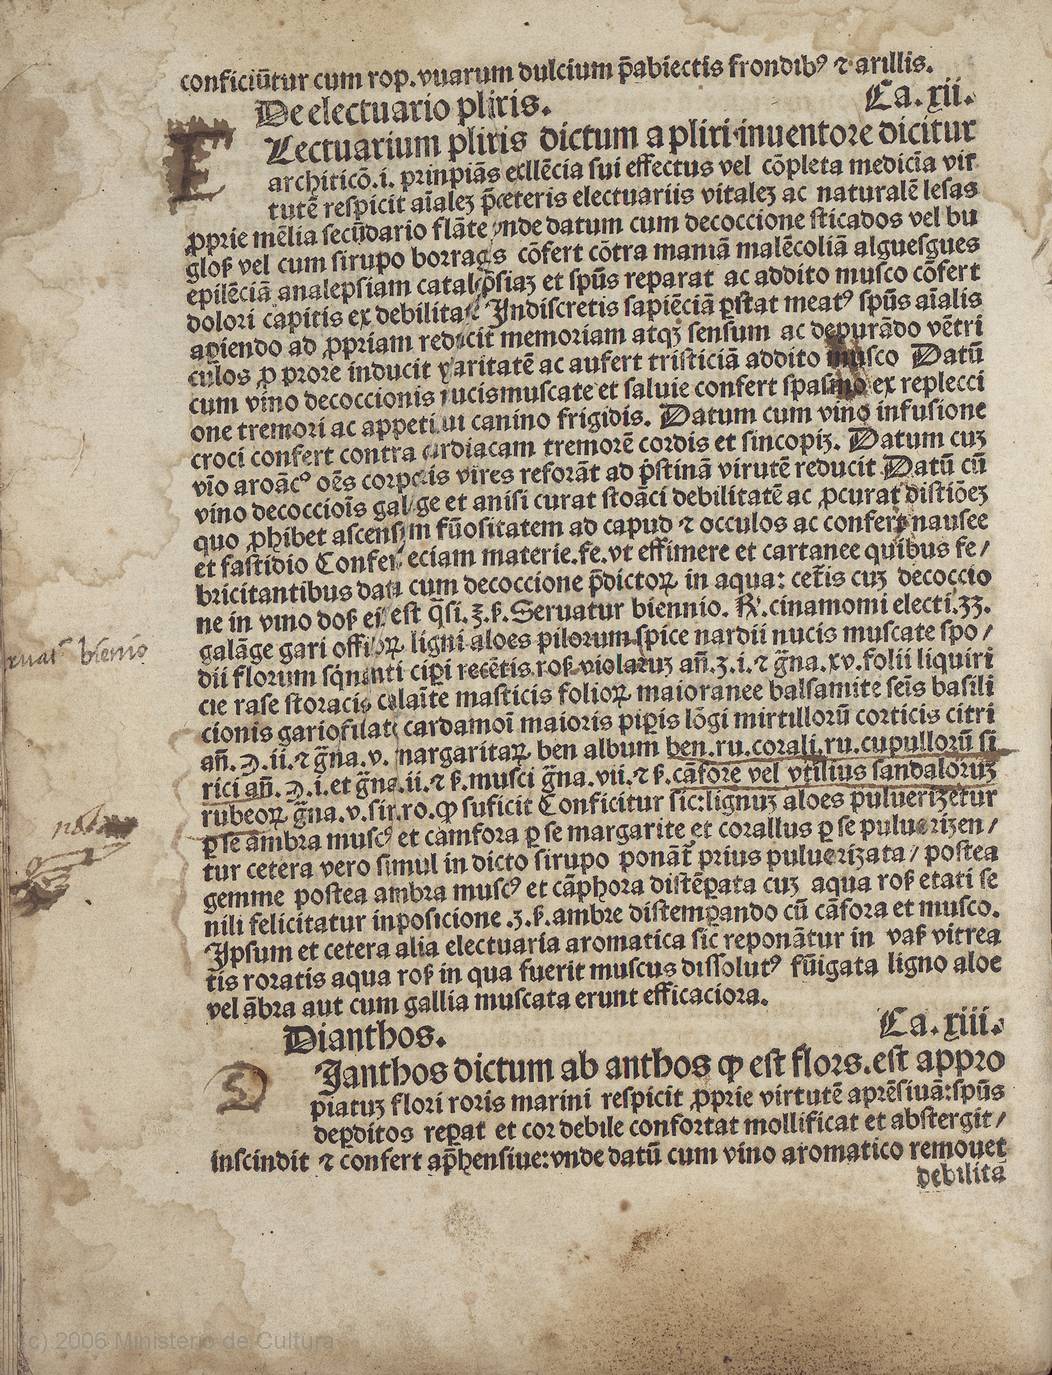 conficiūtur cum rop. vuarum dulcium p̄abiectis frondibꝰ ⁊ arillis.
De electuario pliris. Ca. xii.
ELectuarium pliris dictum a pliri inuentore dicitur
architicō .i. prinpiās excllēcia sui effectus vel cōpleta medicīa vir
tutē respicit aīaleʒ p̄ceteris electuariis vitaleʒ ac naturalē lesas
ꝓprie mēlia secūdario flāte vnde datum cum decoccione sticados vel bu
gloſꝭ vel cum sirupo borragīs cōfert cōtra maniā malēcoliā alguesgues
epilēciā analepsiam catalēpsiaʒ et spūs reparat ac addito musco cōfert
dolori capitis ex debilitate Indiscretis sapiēciā ꝑstat meatꝰ spūs aīalis
apiendo ad ꝓpriam reducit memoriam atqʒ sensum ac depurādo vētri
culos ꝓ prore inducit raritatē ac aufert tristiciā addito musco Datū
cum vīno decoccionis nucismuscate et saluie confert spasmo ex replecci
one tremori ac appetitui canino frigidis. Datum cum vino infusione
croci confert contra cardiacam tremorē cordis et sincopiʒ. Datum cuʒ
vīo aroācꝰ oēs corporis vires reforāt ad p̄stinā virutē reducit Datū cū
vino decoccioīs galāge et anisi curat stoāci debilitatē ac ꝓcurat distiōeʒ
quo ꝓhibet ascensum fūositatem ad capud ⁊ occulos ac confert nausee
et fastidio Confert eciam materie. fe. vt effimere et cartanee quibus fe/
bricitantibus datū cum decoccione p̄dictoꝝ in aqua: cet̄is cuʒ decoccio
ne in vino doſꝭ ei est q̄si. ʒ. ſꝭ. Seruatur biennio. ℞. cinamomi electi. ʒʒ.
galāge gari offiloꝝ ligni aloes pilorum spice nardii nucis muscate spo/
dii florum sq̄nanti ciꝑi recētis roſꝭ violaruʒ añ. ʒ. i. ⁊ g̃na. xv. folii liquiri
cie rase storacis calaīte masticis folioꝝ maioranee balsamite seīs basili
cionis gariofilati cardamoī maioris piꝑis lōgi mirtillorū corticis citri
añ. ℈. ii. ⁊ g̃na. v. margaritaꝝ ben album ben. ru. corali. ru. cupullorū si
rici añ. ℈. i. et g̃na. ii. ⁊ ſꝭ. musci g̃na. vii. ⁊ ſꝭ. cāfore vel vtilius sandaloruʒ
rubeoꝝ g̃na. v. sir. ro. ꝙ suficit Conficitur sic: lignuʒ aloes puluerizetur
ꝑ se ambra muscꝰ et camfora ꝑ se margarite et corallus ꝑ se puluerizen/
tur cetera vero simul in dicto sirupo ponāt̃ prius puluerizata/ postea
gemme postea ambra muscꝰ et cāphora distēꝑata cuʒ aqua roſꝭ etati se
nili felicitatur inposicione. ʒ. ſꝭ. ambre distempando cū cāfora et musco.
Ipsum et cetera alia electuaria aromatica sic reponātur in vaſꝭ vitrea
tīs roratis aqua roſꝭ in qua fuerit muscus dissolutꝰ fūigata ligno aloe
vel ābra aut cum gallia muscata erunt efficaciora.
Dianthos. Ca. xiii.
DIanthos dictum ab anthos ꝙ est flors. est appro
piatuʒ flori roris marini respicit ꝓprie virtutē aprēsiuā: spūs
deꝑditos reꝑat et cor debile confortat mollificat et abstergit/
inscindit ⁊ confert ap̄hensiue: vnde datū cum vino aromatico remouet
debilitā
bienio
nota
(c) 2006 Ministerio de Cultura